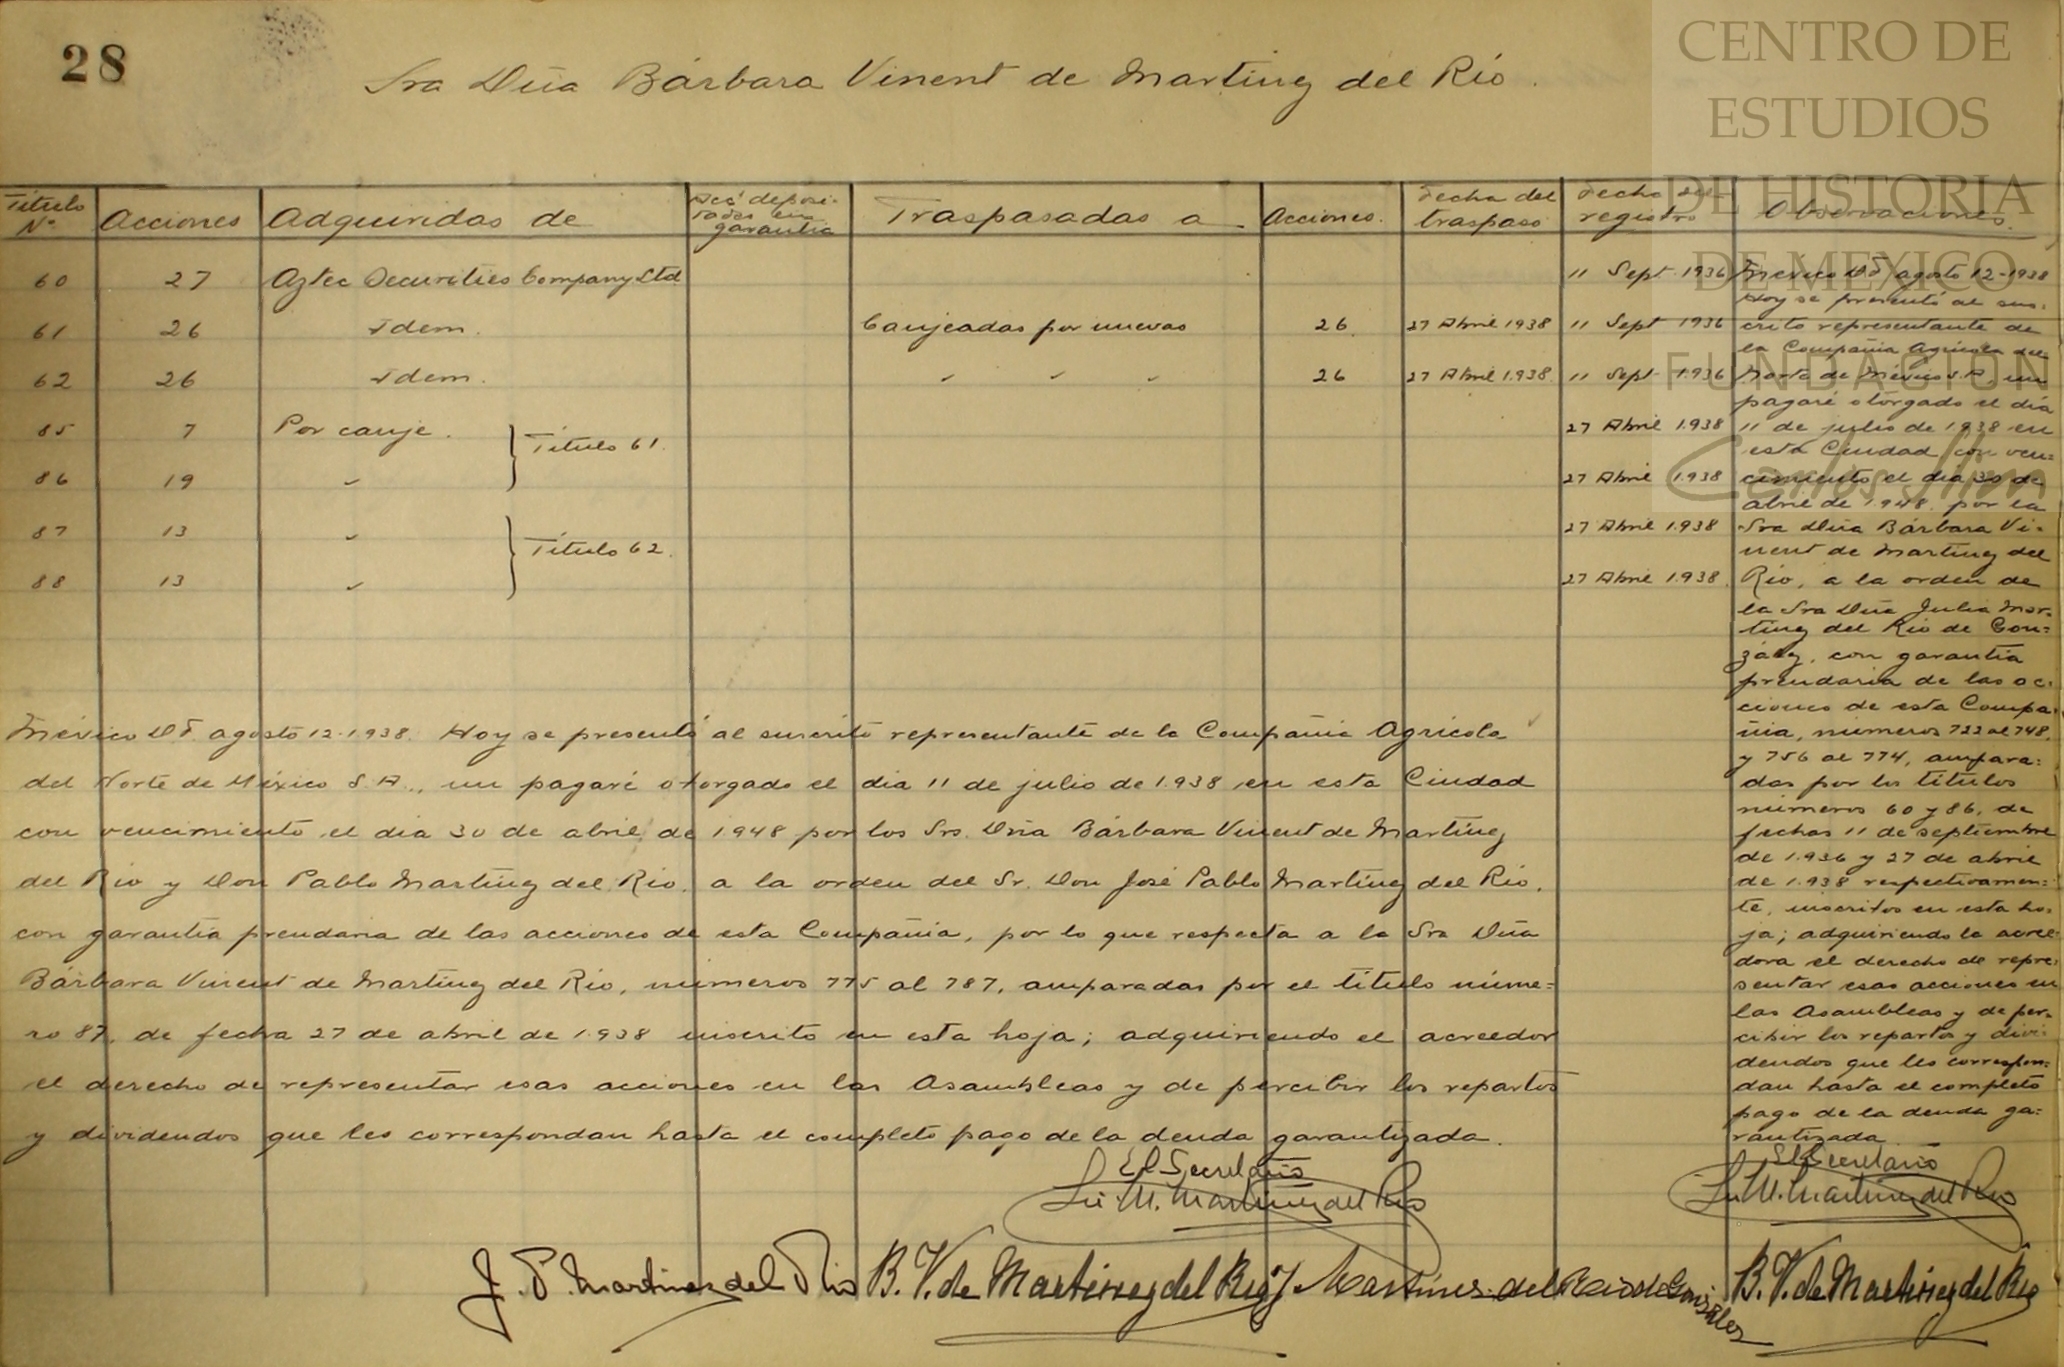 28
Sra Dña Bárbara Vinent de Martínez del Río.
CENTRO DE
ESTUDIOS
DE HISTORIA
DE MEXICO
FUNDACION
Carlos Slim
Título Nº | Acciones | Adquiridas de | Acc. deposi-tadas en garantía | Traspasadas a | Acciones. | Fecha del traspaso | Fecha del registro | Observaciones.
60 27 Aztec Securities Company Ltd 11 Sept 1936
61 26 Idem. Canjeadas por nuevas 26 27 Abril 1938 11 Sept 1936
62 26 Idem. " " " 26 27 Abril 1.938 11 Sept 1.936
85 7 Por canje. } Título 61. 27 Abril 1.938
86 19 " 27 Abril 1.938
87 13 " } Título 62. 27 Abril 1.938
88 13 " 27 Abril 1.938.
México D.F. agosto 12-1938
Hoy se presentó al sus=
crito representante de
la Compañía Agrícola del
Norte de México S.A. un
pagaré otorgado el día
11 de julio de 1.938 en
esta Ciudad con ven=
cimiento el día 30 de
abril de 1.948. por la
Sra Dña Bárbara Vi=
nent de Martínez del
Río, a la orden de
la Sra Dña Julia Mar=
tínez del Río de Gon=
zález, con garantía
prendaria de las ac=
ciones de esta Compa=
ñía, números 722 al 748.
y 756 al 774, ampara=
das por los títulos
números 60 y 86, de
fechas 11 de septiembre
de 1.936 y 27 de abril
de 1.938 respectivamen=
te, inscritos en esta ho=
ja; adquiriendo la acree=
dora el derecho de repre=
sentar esas acciones en
las Asambleas y de per=
cibir los repartos y divi=
dendos que les correspon=
dan hasta el completo
pago de la deuda ga=
rantizada.
El Secretario
México D.F. agosto 12-1.938. Hoy se presentó al suscrito representante de la Compañía Agrícola
del Norte de México S.A., un pagaré otorgado el día 11 de julio de 1.938 en esta Ciudad
con vencimiento el día 30 de abril de 1.948 por los Srs. Dña Bárbara Vinent de Martínez
del Río y Don Pablo Martínez del Río, a la orden del Sr. Don José Pablo Martínez del Río,
con garantía prendaria de las acciones de esta Compañía, por lo que respecta a la Sra Dña
Bárbara Vinent de Martínez del Río, números 775 al 787, amparadas por el título núme=
ro 87, de fecha 27 de abril de 1.938 inscrito en esta hoja; adquiriendo el acreedor
el derecho de representar esas acciones en las Asambleas y de percibir los repartos
y dividendos que les correspondan hasta el completo pago de la deuda garantizada.
El Secretario
M. Martínez del Río
M. Martínez del Río
J. P. Martínez del Río B. V. de Martínez del Río J. Martínez del Río de González B. V. de Martínez del Río